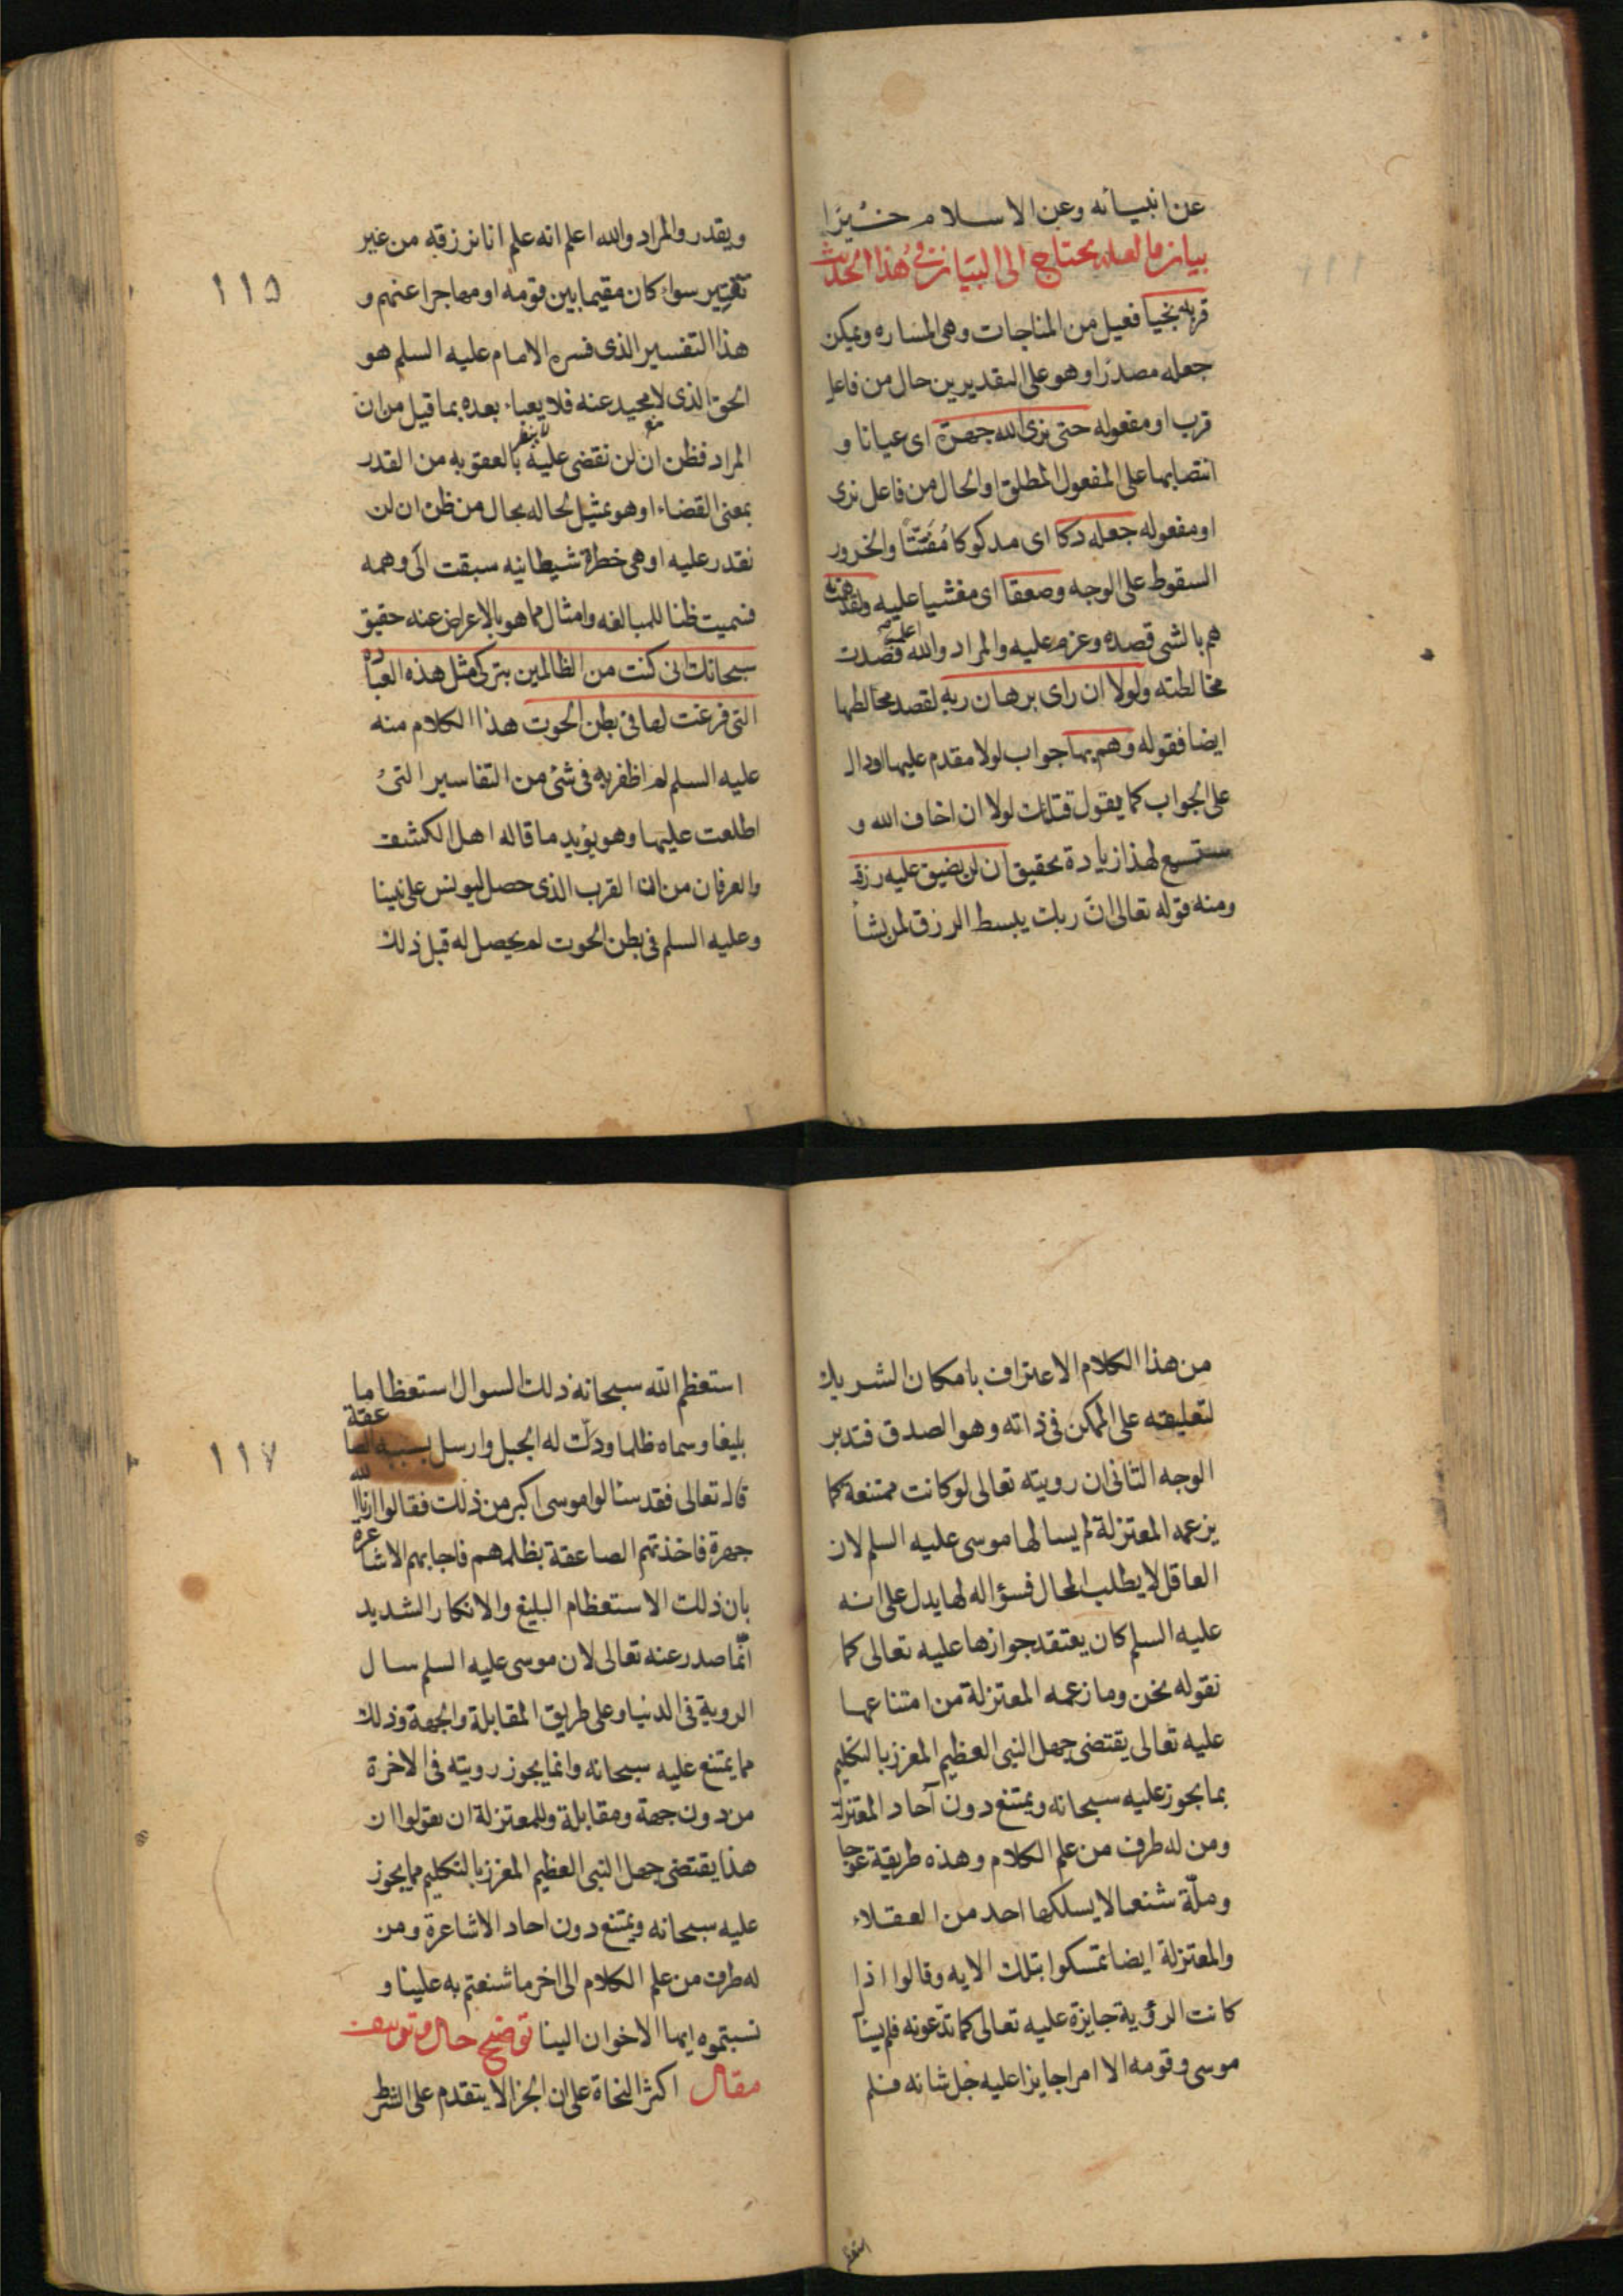 عن انبيائه وعن الاسلام خيرا
بيان ما لعله يحتاج الى البيان فى هذا الحديث
قربه نجيا فعيل من المناجات وهى المساره ويمكن
جعله مصدرا وهو على التقديرين حال من فاعل
قرب او مفعوله حتى نرى الله جهرة اى عيانا و
انتصابها على المفعول المطلق او الحال من فاعل نرى
او مفعوله جعله دكا اى مدكوكا مفتتا والخرور
السقوط على الوجه وصعقا اى مغشيا عليه ولقد همت به
هم بالشى قصده وعزم عليه والمراد والله اعلم قصدت
مخالطته ولولا ان راى برهان ربه لقصد مخالطتها
ايضا فقوله وهم بها جواب لولا مقدم عليها او دال
على الجواب كما يقول قتلتك لولا ان اخاف الله و
ستسمع لهذا زيادة تحقيق ان لن يضيق عليه رزقه
ومنه قوله تعالى ان ربك يبسط الرزق لمن يشأ
ويقدر والمراد والله اعلم انه علم انا نرزقه من غير
تقتير سواء كان مقيما بين قومه او مهاجرا عنهم و
هذا التفسير الذى فسره الامام عليه السلم هو
الحق الذى لا محيد عنه فلا يعباء بعده بما قيل من ان
المراد فظن ان لن نقضى عليه بالعقوبه من القدر
بمعنى القضاء او هو تمثيل لحاله بحال من ظن ان لن
نقدر عليه او هى خطرة شيطانيه سبقت الى وهمه
فسميت ظنا للمبالغه وامثال مما هو بالاعراض عنه حقيق
سبحانك انى كنت من الظالمين بتركى مثل هذه العبادة
التى فرغت لها فى بطن الحوت هذا الكلام منه
عليه السلم لم اظفر به فى شئ من التفاسير التى
اطلعت عليها وهو يؤيد ما قاله اهل الكشف
والعرفان من ان القرب الذى حصل ليونس على نبينا
وعليه السلم فى بطن الحوت لم يحصل له قبل ذلك
١١٥
من هذا الكلام الاعتراف بامكان الشريك
لتعليقه على الممكن فى ذاته وهو الصدق فتدبر
الوجه الثانى ان رويته تعالى لو كانت ممتنعة كما
يزعمه المعتزلة لم يسالها موسى عليه السلم لان
العاقل لا يطلب المحال فسؤاله لها يدل على انه
عليه السلم كان يعتقد جوازها عليه تعالى كما
نقوله نحن وما زعمه المعتزلة من امتناعها
عليه تعالى يقتضى جهل النبى العظيم المعزز بالتكليم
بما يجوز عليه سبحانه ويمتنع دون آحاد المعتزلة
ومن له طرف من علم الكلام وهذه طريقة عوجا
وملّة شنعا لا يسلكها احد من العقلاء
والمعتزلة ايضا تمسكوا بتلك الايه وقالوا اذا
كانت الرؤية جايزة عليه تعالى كما تدّعونه فلم يسأل
موسى وقومه الا امرا جايزا عليه جل شانه فلم
استعظم
استعظم الله سبحانه ذلك السوال استعظاما
بليغا وسماه ظلما ودكّت له الجبل وارسل بسببه الصاعقة
قال تعالى فقد سئالوا موسى اكبر من ذلك فقالوا ارنا الله
جهرة فاخذتهم الصاعقة بظلمهم فاجابهم الاشاعره
بان ذلك الاستعظام البليغ والانكار الشديد
انّما صدر عنه تعالى لان موسى عليه السلم سال
الروية فى الدنيا وعلى طريق المقابلة والجهة وذلك
مما يمتنع عليه سبحانه وانما يجوز رويته فى الاخرة
من دون جهة ومقابلة وللمعتزلة ان يقولوا ان
هذا يقتضى جهل النبى العظيم المعزز بالتكليم مما يجوز
عليه سبحانه ويمتنع دون احاد الاشاعرة ومن
له طرف من علم الكلام الى اخر ما شنعتم به علينا و
نسبتموه ايها الاخوان الينا توضيح حال وتوسيف
مقال اكثر النحاة على ان الجزا لا يتقدم على الشرط
١١٧